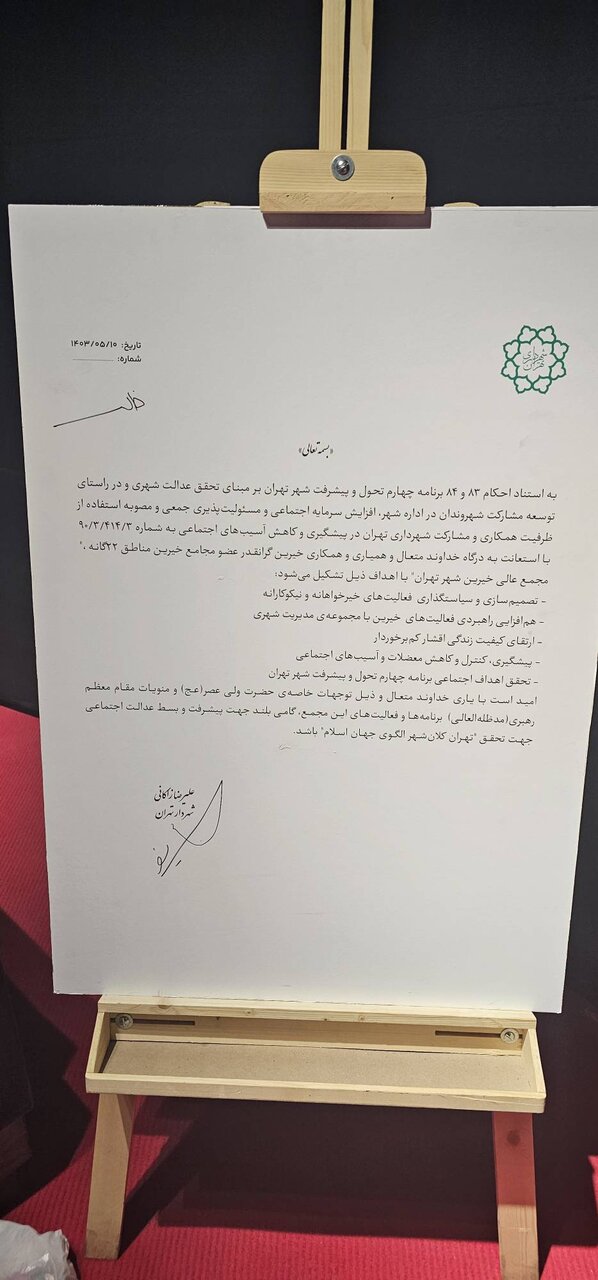 شهرداری تهران
تاریخ: ۱۴۰۳/۰۵/۱۰
شماره:
«بسمه تعالی»
به استناد احکام ۸۳ و ۸۴ برنامه چهارم تحول و پیشرفت شهر تهران بر مبنای تحقق عدالت شهری و در راستای
توسعه مشارکت شهروندان در اداره شهر، افزایش سرمایه اجتماعی و مسئولیت‌پذیری جمعی و مصوبه استفاده از
ظرفیت همکاری و مشارکت شهرداری تهران در پیشگیری و کاهش آسیب‌های اجتماعی به شماره ۹۰/۳/۴۱۴/۳
با استعانت به درگاه خداوند متعال و همیاری و همکاری خیرین گرانقدر عضو مجامع خیرین مناطق ۲۲گانه ، "
مجمع عالی خیرین شهر تهران" با اهداف ذیل تشکیل می‌شود:
- تصمیم‌سازی و سیاستگذاری فعالیت‌های خیرخواهانه و نیکوکارانه
- هم‌افزایی راهبردی فعالیت‌های خیرین با مجموعه‌ی مدیریت شهری
- ارتقای کیفیت زندگی اقشار کم‌برخوردار
- پیشگیری، کنترل و کاهش معضلات و آسیب‌های اجتماعی
- تحقق اهداف اجتماعی برنامه چهارم تحول و پیشرفت شهر تهران
امید است با یاری خداوند متعال و ذیل توجهات خاصه‌ی حضرت ولی عصر(عج) و منویات مقام معظم
رهبری(مدظله‌العالی) برنامه‌ها و فعالیت‌های این مجمع، گامی بلند جهت پیشرفت و بسط عدالت اجتماعی
جهت تحقق "تهران کلان‌شهر الگوی جهان اسلام" باشد.
علیرضا زاکانی
شهردار تهران